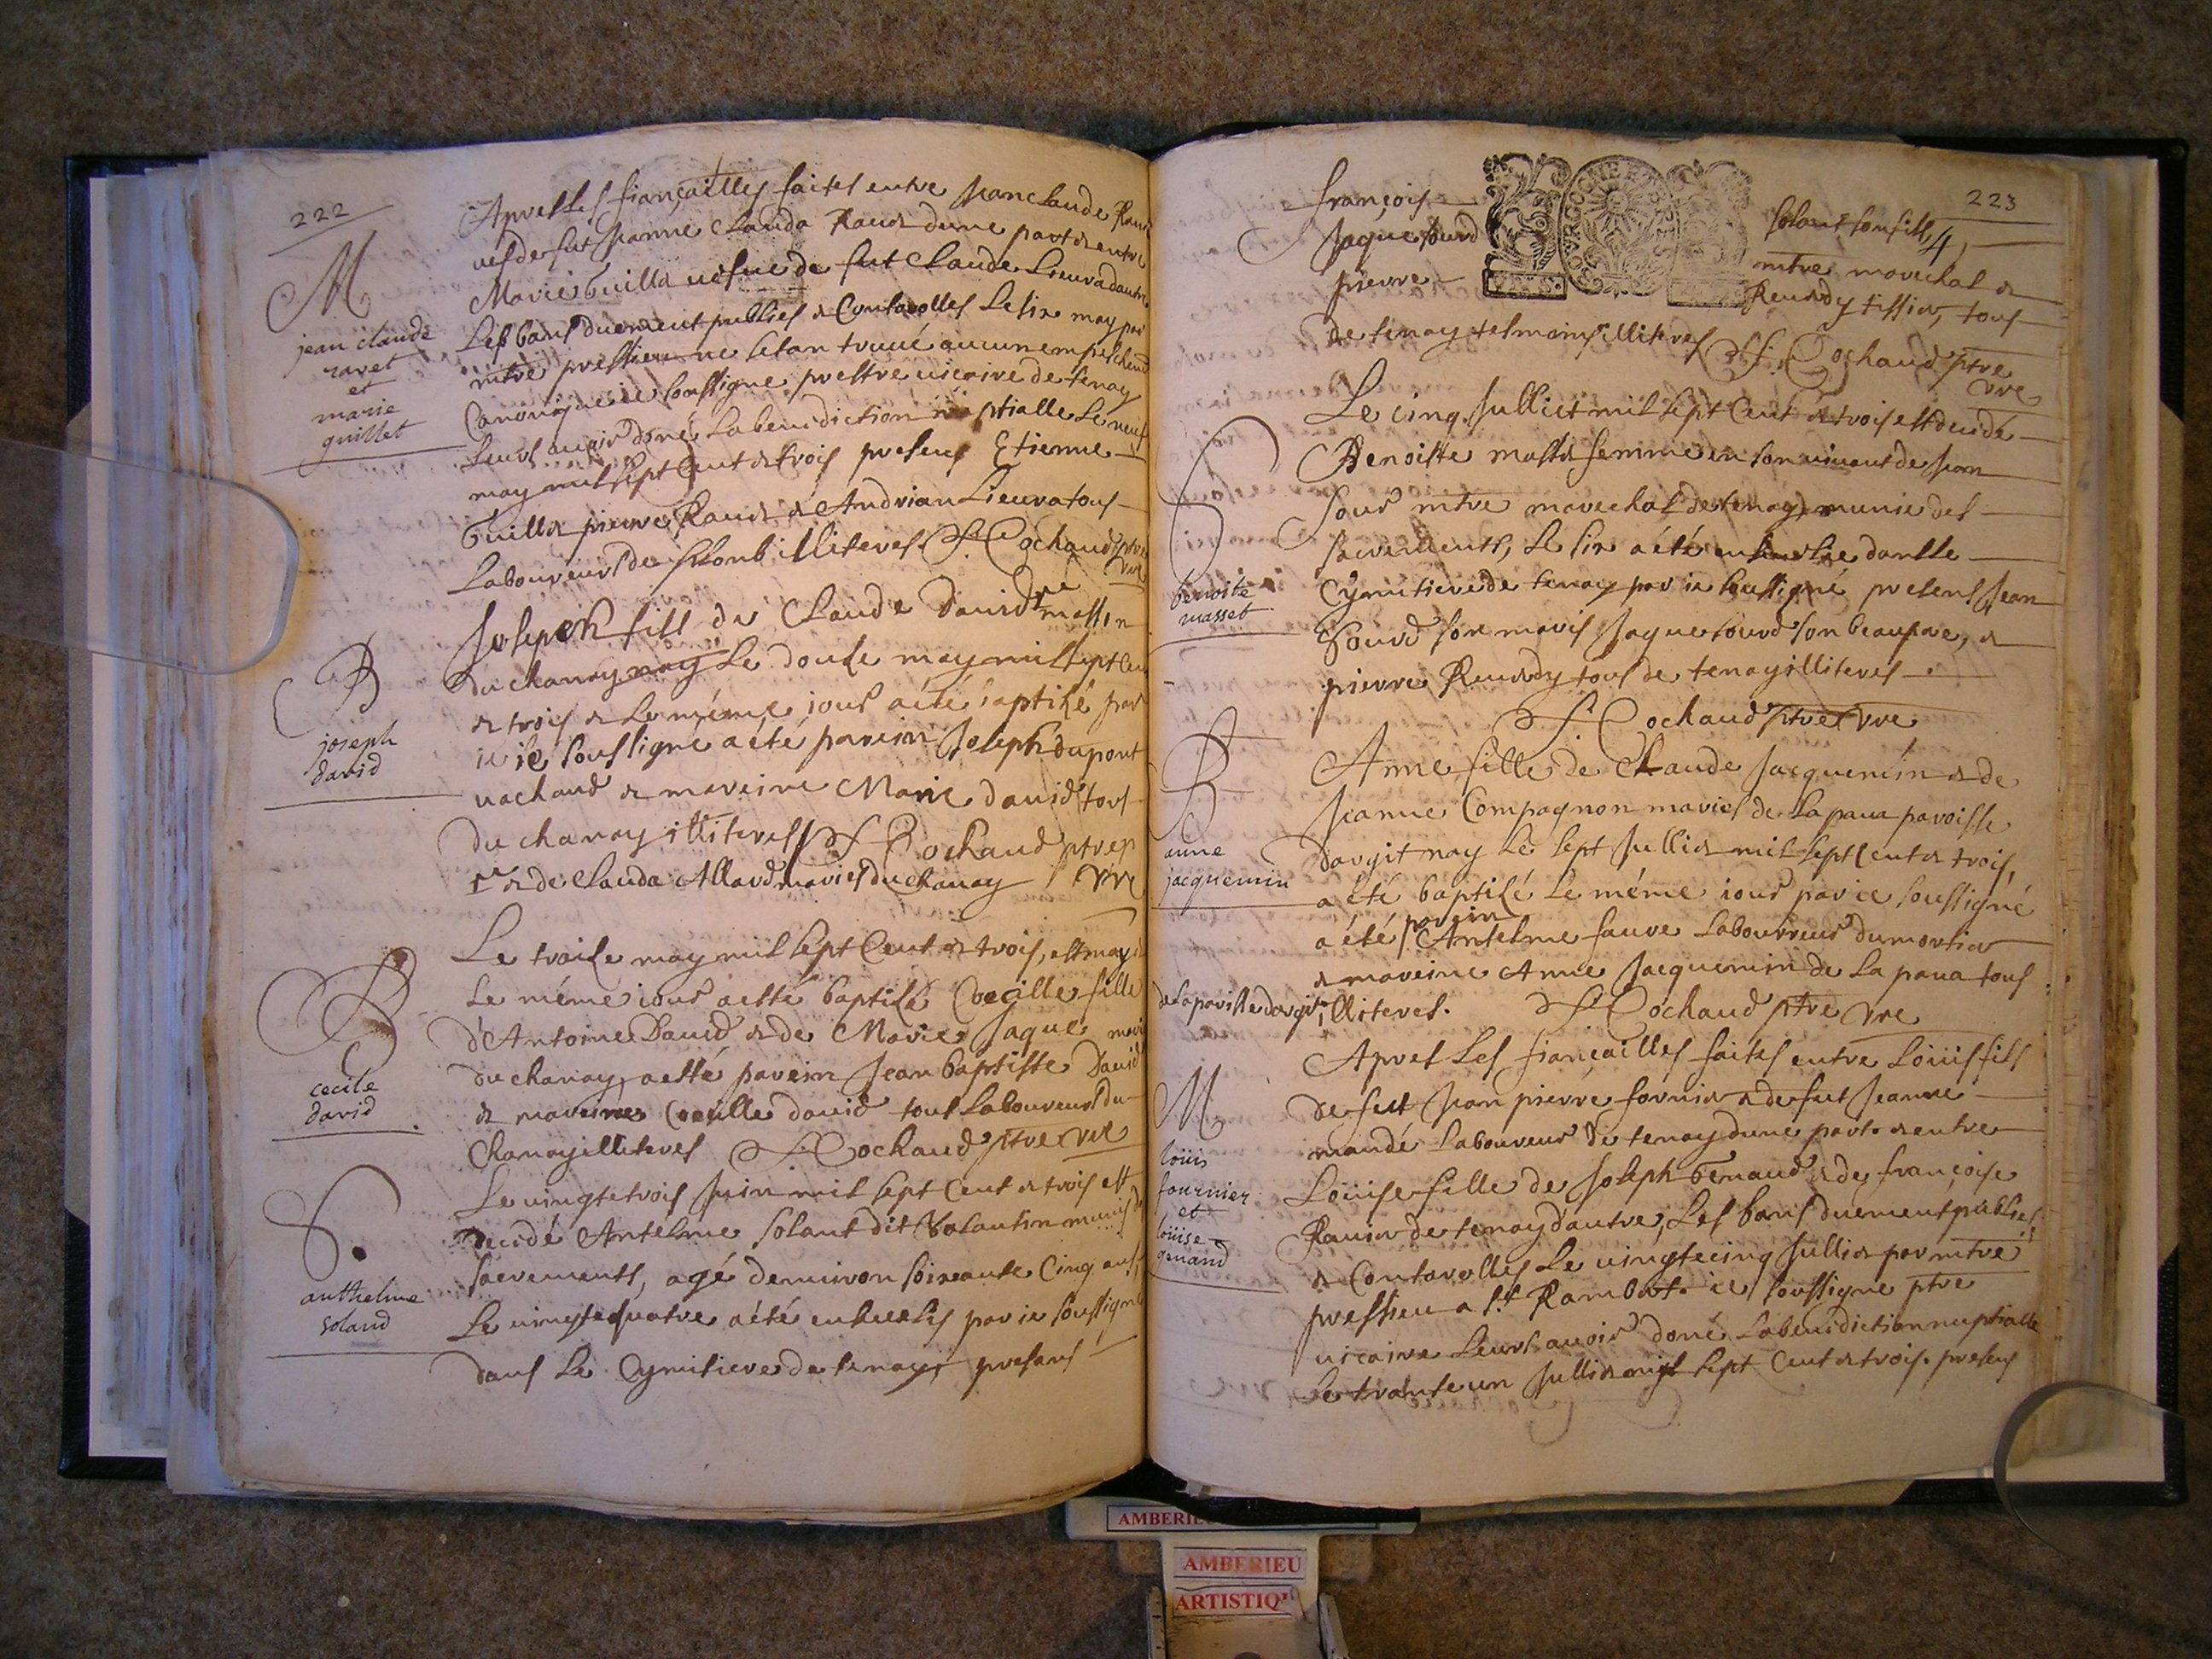 222
M
jean claude
ravet
et
marie
guillet
Apres les fiançailles faites entre Jean claude Rauet
uef de fut Jeanne Clauda Rauet dune part et entre
Marie Guillet uefue de fut Claude Lieura dautre
Les bans duement publies et Controlles Le six may par
mtre pressieu ne setan truué aucun empeschem
Canonique ie soussigne prestre uicaire de tenay
Leurs auoir doné La benediction nuptialle Le neuf
may mil sept Cent et trois presens Etienne
Guillet pierre Rauet et Andrian Lieura tous
Laboureurs de illiteres. F. Cochaud ptre
vre
B
joseph
david
Joseph fils de Claude Dauid masson
du chanay nay Le douse may mil sept Cent
et trois et Le méme iour a été baptisé par
ie ie soussigné a été parein Joseph dupont
uachaud et mareine Marie dauid tous
du chanay illiteres F Cochaud ptre
et de Clauda Allard maries du chanay vre
B
cecile
david
Le traise may mil sept Cent et trois, est nay et
Le méme iour a esté baptisé Cecille fille
d'Antoine Dauid et de Marie Jaque maries
du chanay, a esté parein Jean baptiste Dauid
et mareine Cecille dauid tous Laboureurs du
Chanay illiteres F. Cochaud ptre vre
S.
anthelme
soland
Le uingtetrois Juin mil sept Cent et trois est
decidé Antelme Solant dit Valantin munis des
sacrements, agé denuiron soixante Cinq ans,
Le uingtequatre a été enseuelis par ie soussigné
dans Le Cymitiere de tenay presans
223
françois
Solant son fils,
Jaque sourd
mtre marechal et
pierre
Reuerdy tissier, tous
GENE
4
de tenay tesmoins illiteres F. Cochaud ptre
vre
S
benoite
masset
Le cinq Julliet mil sept Cent et trois est decidé
Benoiste masset femme en son uiuant de Jean
Sour mtre marechal de tenay munie des
sacrements, Le six a été enseuelie dans le
Cymitiere de tenay par ie soussigné presens Jean
Sourd son maris Jaque sourd son beaupere, et
pierre Reuerdy tous de tenay illiteres
F. Cochaud ptre vre
B
anne
jacquemin
Anne fille de Claude Jacquemin et de
Jeanne Compagnon maries de La paua paroisse
dargit nay Le sept Julliet mil sept Cent et trois,
a été baptisé Le méme iour par ie soussigné
parein
a été Antelme faure Laboureur du mortier
et mareine Anne Jacquemin de La paua tous
de la paroisse dargit illiteres. F. Cochaud ptre vre
M
loüis
fournier
et
loüise
genand
Apres Les fiançailles faites entre Loüis fils
de fut Jean pierre fornier et de fut Jeanne
mandé Laboureur de tenay dune part et entre
Loüise fille de Joseph Genaud et de françoise
Rauier de tenay d'autre, Les bans duement publies
et Controlles Le uingtecinq Julliet par mtre
pressieu a St Rambert ie soussigne ptre
uicaire Leurs auoir doné La benediction nuptialle
Le trante un Julliet mil sept Cent et trois. presens
AMBERIEU
AMBERIEU
ARTISTIQU